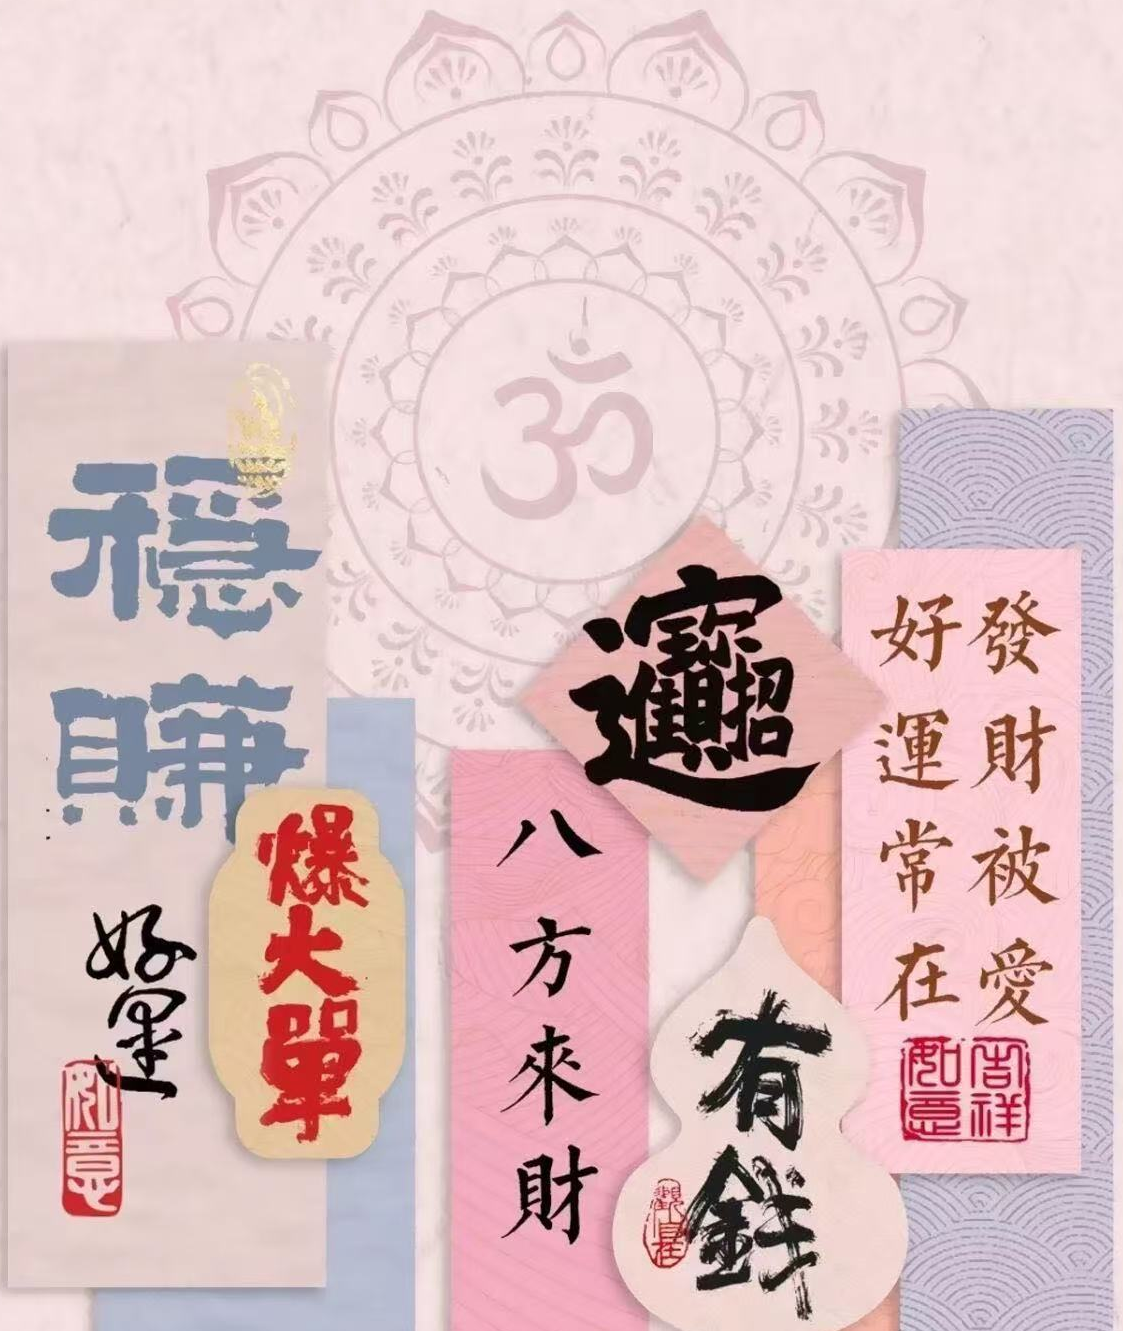 ॐ
穩賺
好運
如意
爆大單
八方來財
招財進寶
有錢
發財被愛
好運常在
吉祥如意